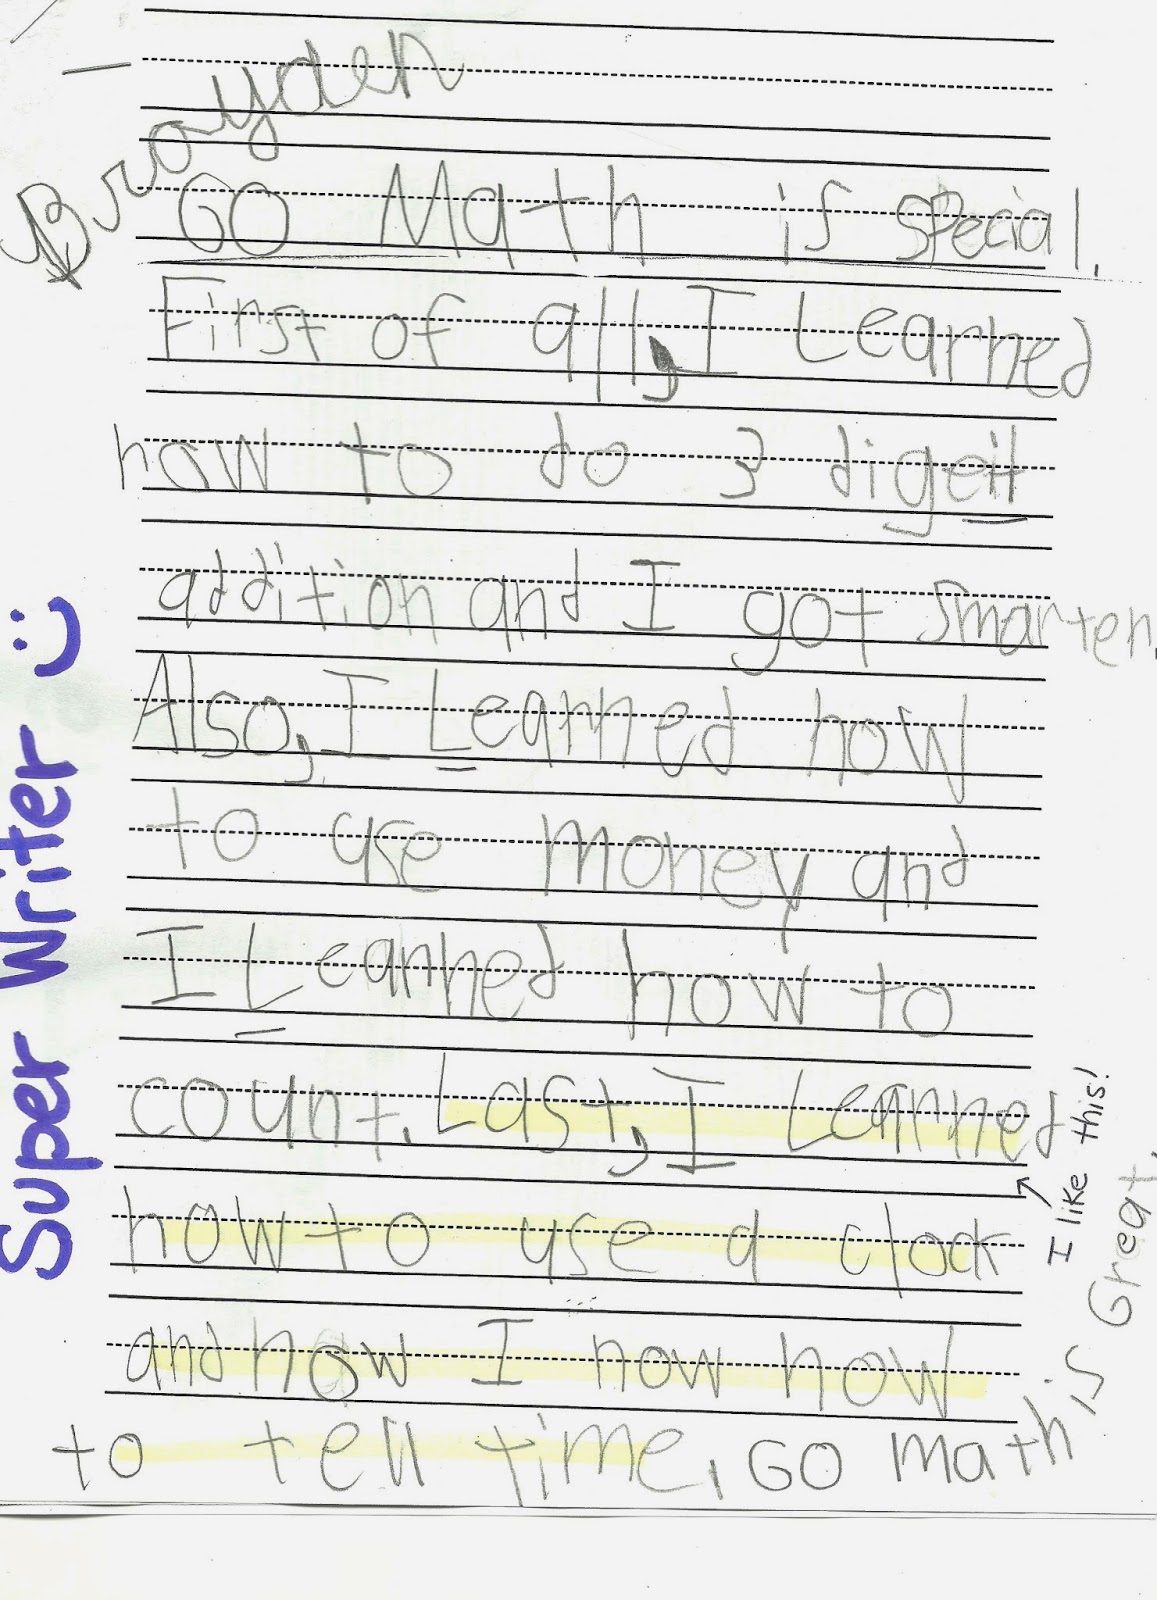 Brayden
GO Math is special.
First of all, I Learned
how to do 3 digeit
addition and I got smarter.
Also, I Learned how
to use money and
I Learned how to
count. Last, I Learned
how to use a clock
and now I now how
to tell time. GO Math is Great.
I like this!
Super Writer :)